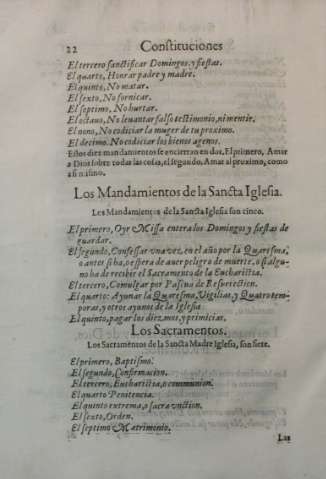 22 Constituciones
El tercero sanctificar Domingos, y fiestas.
El quarto, Honrar padre y madre.
El quinto, No matar.
El sexto, No fornicar.
El septimo, No hurtar.
El octauo, No leuantar falso testimonio, ni mentir.
El nono, No codiciar la muger de tu proximo.
El decimo. No codiciar los bienes agenos.
Estos diez mandamientos se encierran en dos, El primero, Amar
a Dios sobre todas las cosas, el segundo, Amar al proximo, como
a si mismo.
Los Mandamientos de la Sancta Iglesia.
Los Mandamientos de la Sancta Iglesia son cinco.
El primero, Oyr Missa entera los Domingos y fiestas de
guardar.
El segundo, Confessar vna vez, en el año por la Quaresma,
o antes si ha, o espera de auer peligro de muerte, o si algu-
no ha de recebir el Sacramento de la Eucharistia.
El tercero, Comulgar por Pascua de Resurection.
El quarto: Ayunar la Quaresma, Vigilias, y Quatro tem-
poras, y otros ayunos de la Iglesia.
El quinto, pagar los diezmos, y primicias.
Los Sacramentos.
Los Sacramentos de la Sancta Madre Iglesia, son siete.
El primero, Baptismo.
El segundo, Confirmacion.
El tercero, Eucharistia, o communion.
El quarto Penitencia.
El quinto extrema, o sacra vnction.
El sexto, Orden.
El septimo Matrimonio.
Las